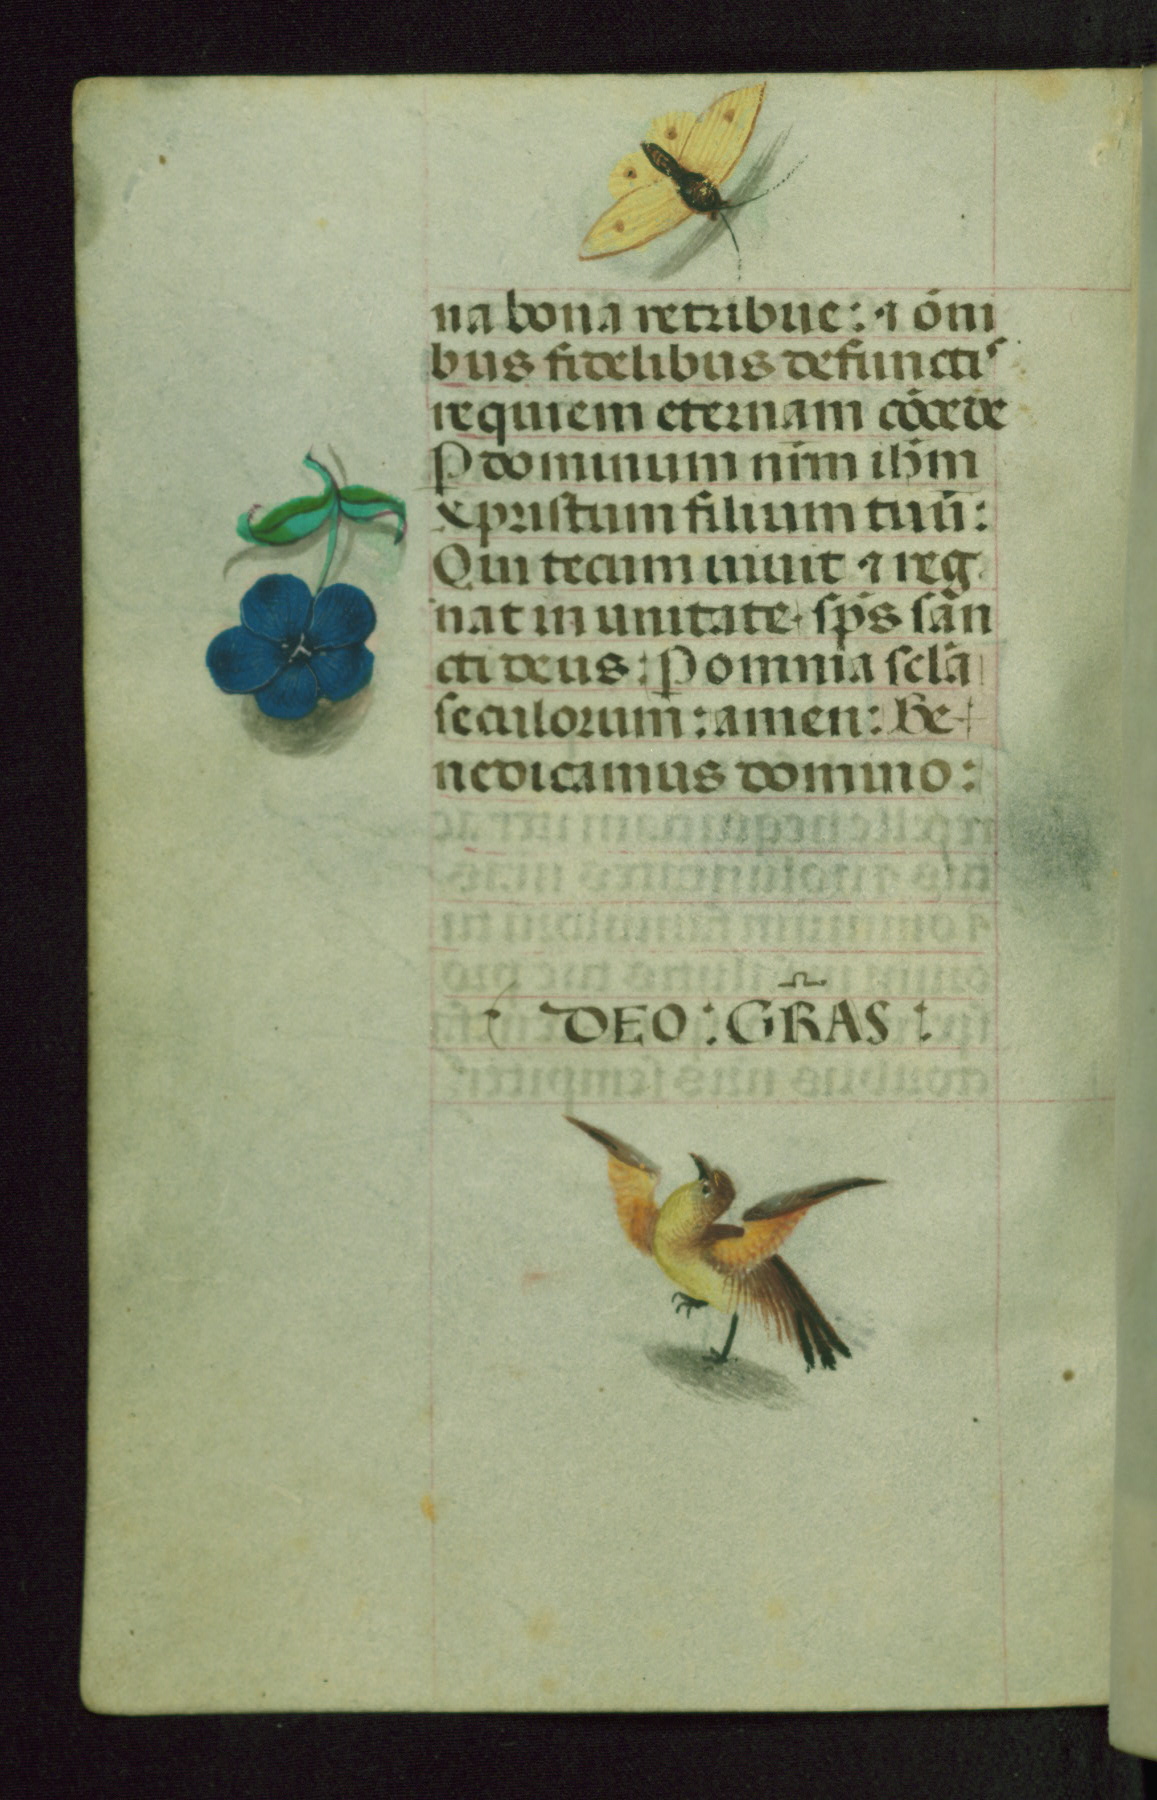 na bona retribue: ⁊ om̄i
bus fidelibus defunctis
requiem eternam cōcede
P dominum nr̄m ih̄m
xpristum filium tuū:
Qui tecum uiuit ⁊ reg
nat in unitate sp̄s sān
cti deus: P omnia sclā
seculorum: amen: Be-
nedicamus domino:
DEO: GR̄AS: